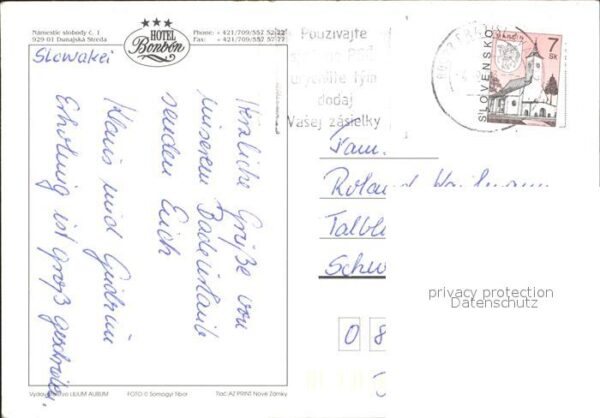 Námestie slobody č. 1
929 01 Dunajská Streda
HOTEL
Bonbón
Phone: +421/709/557 52 22
Fax: +421/709/557 57 77
Slowakei
Herzliche Grüße von
unserem Badeurlaub
senden Euch
Klaus und Gudrun
Erholung ist groß geschrieben.
Používajte
správne PSČ
urýchlite tým
dodaj
Vašej zásielky
MARTIN
7
Sk
SLOVENSKO
Fam.
Roland
Talbl
Schw
0 8
privacy protection
Datenschutz
LILIUM AURUM
FOTO © Somogyi Tibor
Tlač: AZ PRINT Nové Zámky